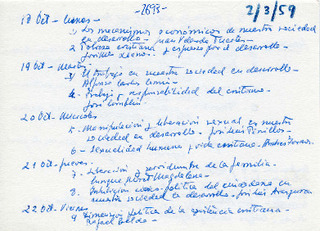 -2693-
2/3/59
18 Oct - Lunes -
1 Los mecanismos económicos de nuestra sociedad
en desarrollo - Juan Velarde Fuertes
2 Pobreza cristiana y esfuerzo por el desarrollo -
19 Oct - Martes
3 El trabajo en nuestra sociedad en desarrollo -
4. Trabajo y responsabilidad del cristiano -
20 Oct - Miércoles
5. Manipulación y liberación sexual en nuestra
sociedad en desarrollo - José Luis Pinillos -
6. - Sexualidad humana y vida cristiana.
21 Oct - jueves.
7. Liberación y servidumbre de la familia -
Enrique Miret Magdalena -
8. política del ciudadano en
nuestra sociedad en desarrollo - José Luis Aranguren
22 Oct - Viernes
9. Dimensión política de la existencia cristiana -
Rafael Belda -